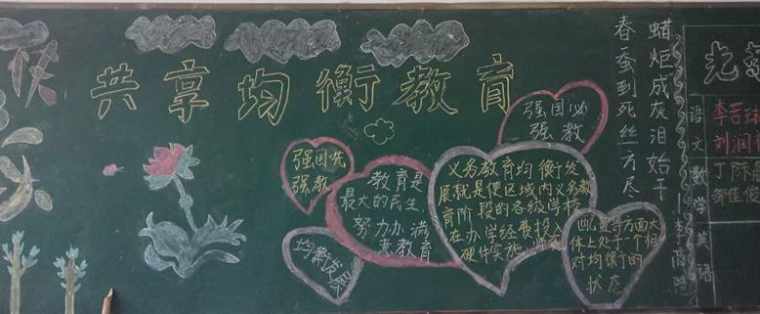 共享均衡教育
强国必
强教
强国优
强教
教育是
最大的民生,
努力办满
意教育
均衡发展
义务教育均衡发
展就是使区域内义务教
育阶段的各级学校
在办学经费投入
硬件实施
大个的
状态
春蚕到死丝方尽
蜡炬成灰泪始干
光
语文
数学
英语
刘润